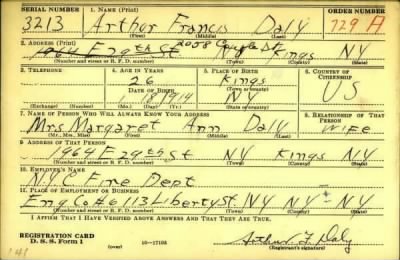 SERIAL NUMBER 1. NAME (Print) ORDER NUMBER
3213 Arthur Francis Daly 729 A
(First) (Middle) (Last)
2. ADDRESS (Print) 2058
1964 E 29th St N.Y. Kings N.Y.
(Number and street or R. F. D. number) (Town) (County) (State)
3. TELEPHONE 4. AGE IN YEARS 5. PLACE OF BIRTH 6. COUNTRY OF CITIZENSHIP
26 Kings
DATE OF BIRTH (Town or county)
1 18 1914 N.Y. U S
(Exchange) (Number) (Mo.) (Day) (Yr.) (State or country)
7. NAME OF PERSON WHO WILL ALWAYS KNOW YOUR ADDRESS 8. RELATIONSHIP OF THAT PERSON
Mrs Margaret Ann Daly Wife
(Mr., Mrs., Miss) (First) (Middle) (Last)
9. ADDRESS OF THAT PERSON
1964 E 29th St N.Y. Kings N.Y.
(Number and street or R. F. D. number) (Town) (County) (State)
10. EMPLOYER'S NAME
N.Y.C Fire Dept
11. PLACE OF EMPLOYMENT OR BUSINESS
Eng Co #6 113 Liberty St. NY NY NY
(Number and street or R. F. D. number) (Town) (County) (State)
I AFFIRM THAT I HAVE VERIFIED ABOVE ANSWERS AND THAT THEY ARE TRUE.
REGISTRATION CARD
D. S. S. Form 1 (over) 16—17105 Arthur F. Daly
(Registrant's signature)